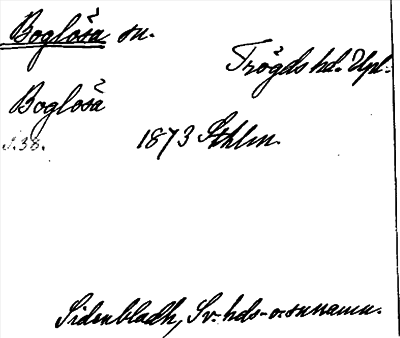 Boglösa sn.
Trögds hd. Upl.
Boglöså
s. 38.
1873 Sthlm.
Sidenbladh, Sv. hds- o. snnamn.